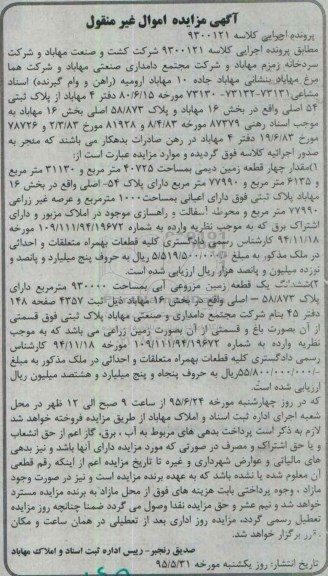 آگهی مزایده اموال غیر منقول
پرونده اجرایی کلاسه ۹۳۰۰۱۲۱
مطابق پرونده اجرایی کلاسه ۹۳۰۰۱۲۱ شرکت کشت و صنعت مهاباد و شرکت
سردخانه زمزم مهاباد و شرکت مجتمع دامداری صنعتی مهاباد و شرکت هما
مرغ مهاباد بنشانی مهاباد جاده ۱۰ مهاباد ارومیه (راهن و وام گیرنده) اسناد
مشاعی ۷۳۱۳۱-۷۳۱۳۲- ۷۳۱۳۰ مورخه ۸۰/۶/۱۵ دفتر ۴ مهاباد از پلاک ثبتی
۵۴ اصلی واقع در بخش ۱۶ مهاباد و پلاک ۵۸/۸۷۳ اصلی بخش ۱۶ مهاباد به
موجب اسناد رهنی ۸۷۳۷۹ مورخه ۸/۴/۸۳ و ۸۱۹۲۸ مورخ ۲/۳/۸۳ و ۷۸۷۲۶
مورخ ۱۹/۶/۸۳ دفتر ۴ مهاباد در رهن صادرات بدهکار می باشند که منجر به
صدور اجرائیه کلاسه فوق گردیده و موارد مزایده عبارت است از:
۱)مقدار چهار قطعه زمین دیمی بمساحت ۴۰۷۲۵ متر مربع و ۳۱۱۳۰ متر مربع
و ۶۱۳۵ متر مربع و ۷۷۹۹۰ متر مربع دارای پلاک ۵۴- اصلی واقع در بخش ۱۶
مهاباد پلاک ثبتی فوق دارای اعیانی بمساحت ۱۰۰۰مترمربع و عرصه غیر زراعی
۷۷۹۹۰ متر مربع و محوطه آسفالت و راهسازی موجود در املاک مزبور و دارای
اشتراک برق که به موجب نظریه وارده به شماره ۱۰۹/۱۱۱/۹۴/۱۹۶۷۲ مورخه
۹۴/۱۱/۱۸ کارشناس رسمی دادگستری کلیه قطعات بهمراه متعلقات و احداثی
در ملک مذکور به مبلغ ۵/۵۱۹/۵۰۰/۰۰۰ ریال به حروف پنج میلیارد و پانصد و
نوزده میلیون و پانصد هزار ریال ارزیابی شده است.
۲)ششدانگ یک قطعه زمین مزروعی آبی بمساحت ۹۳۰۰۰۰ مترمربع دارای
پلاک ۵۸/۸۷۳ – اصلی واقع در بخش ۱۶ مهاباد ذیل ثبت ۴۳۵۷ صفحه ۱۴۸
دفتر ۴۵ بنام شرکت مجتمع دامداری و صنعتی مهاباد پلاک ثبتی فوق قسمتی
از آن بصورت باغ و قسمتی از آن بصورت زمین زراعی می باشد که به موجب
نظریه وارده به شماره ۱۰۹/۱۱۱/۹۴/۱۹۶۷۲ مورخه ۹۴/۱۱/۱۸ کارشناس
رسمی دادگستری کلیه قطعات بهمراه متعلقات و احداثی در ملک مذکور به مبلغ
ریال به حروف پنجاه و پنج میلیارد و هشتصد میلیون ریال
ارزیابی شده است.
که در روز چهارشنبه مورخه ۹۵/۶/۲۴ از ساعت ۹ صبح الی ۱۲ ظهر در محل
شعبه اجرای اداره ثبت اسناد و املاک مهاباد از طریق مزایده فروخته خواهد شد
لازم به ذکر است پرداخت بدهی های مربوط به آب ، برق، گاز اعم از حق انشعاب
و یا حق اشتراک و مصرف در صورتی که مورد مزایده دارای آنها باشد و نیز بدهی
های مالیاتی و عوارض شهرداری و غیره تا تاریخ مزایده اعم از اینکه رقم قطعی
آن معلوم شده یا نشده باشد که به عهده برنده مزایده است و نیز در صورت وجود
مازاد ، وجوه پرداختی بابت هزینه های فوق از محل مازاد به برنده مزایده مسترد
خواهد شد و نیم عشر و حق مزایده نقدا وصول می گردد ضمنا چنانچه روز مزایده
تعطیل رسمی گردد، مزایده روز اداری بعد از تعطیلی در همان ساعت و مکان
مقرر برگزار خواهد شد.
صدیق رنجبر- رییس اداره ثبت اسناد و املاک مهاباد
تاریخ انتشار: روز یکشنبه مورخه ۹۵/۵/۳۱